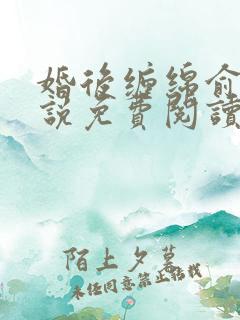 婚後缠绵俞
說免費閱讀
陌上夕暮
未经同意禁止转载